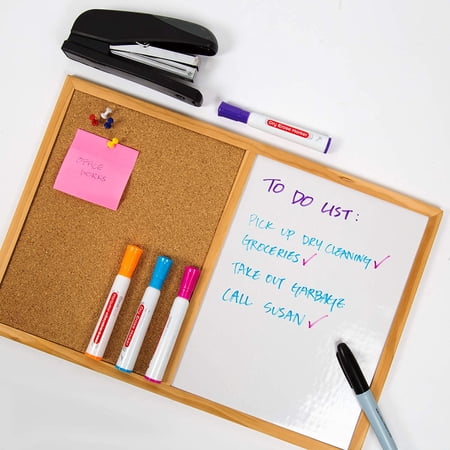 OFFICE
WORKS
Dry Erase Marker
TO DO LIST:
PICK UP DRY CLEANING ✓
GROCERIES ✓
TAKE OUT GARBAGE
CALL SUSAN ✓